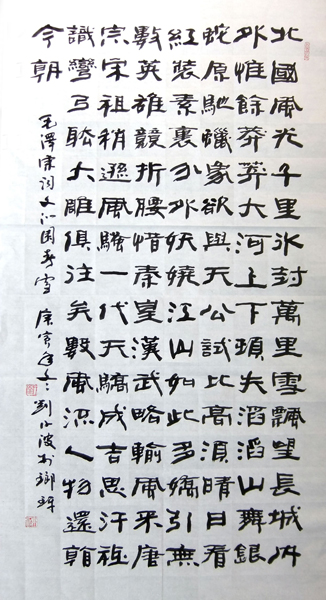 北國風光千里冰封萬里雪飄望長城内
外惟餘莽莽大河上下頓失滔滔山舞銀
蛇原馳蠟象欲與天公試比高須晴日看
紅裝素裹分外妖嬈江山如此多嬌引無
數英雄競折腰惜秦皇漢武略輸風采唐
宗宋祖稍遜風騷一代天驕成吉思汗祗
識彎弓射大雕俱往矣數風流人物還看
今朝
毛澤東詞沁園春雪 庚寅年 劉小波於